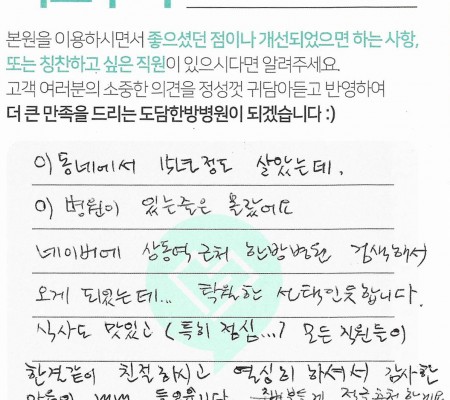 본원을 이용하시면서 좋으셨던 점이나 개선되었으면 하는 사항,
또는 칭찬하고 싶은 직원이 있으시다면 알려주세요.
고객 여러분의 소중한 의견을 정성껏 귀담아듣고 반영하여
더 큰 만족을 드리는 도담한방병원이 되겠습니다 :)
이 동네에서 15년정도 살았는데,
이 병원이 있는줄은 몰랐어요
네이버에 상동역 근처 한방병원 검색해서
오게 되었는데... 탁월한 선택인듯합니다.
식사도 맛있고 (특히 점심...) 모든 직원들이
한결같이 친절하시고 열심히 하셔서 감사한